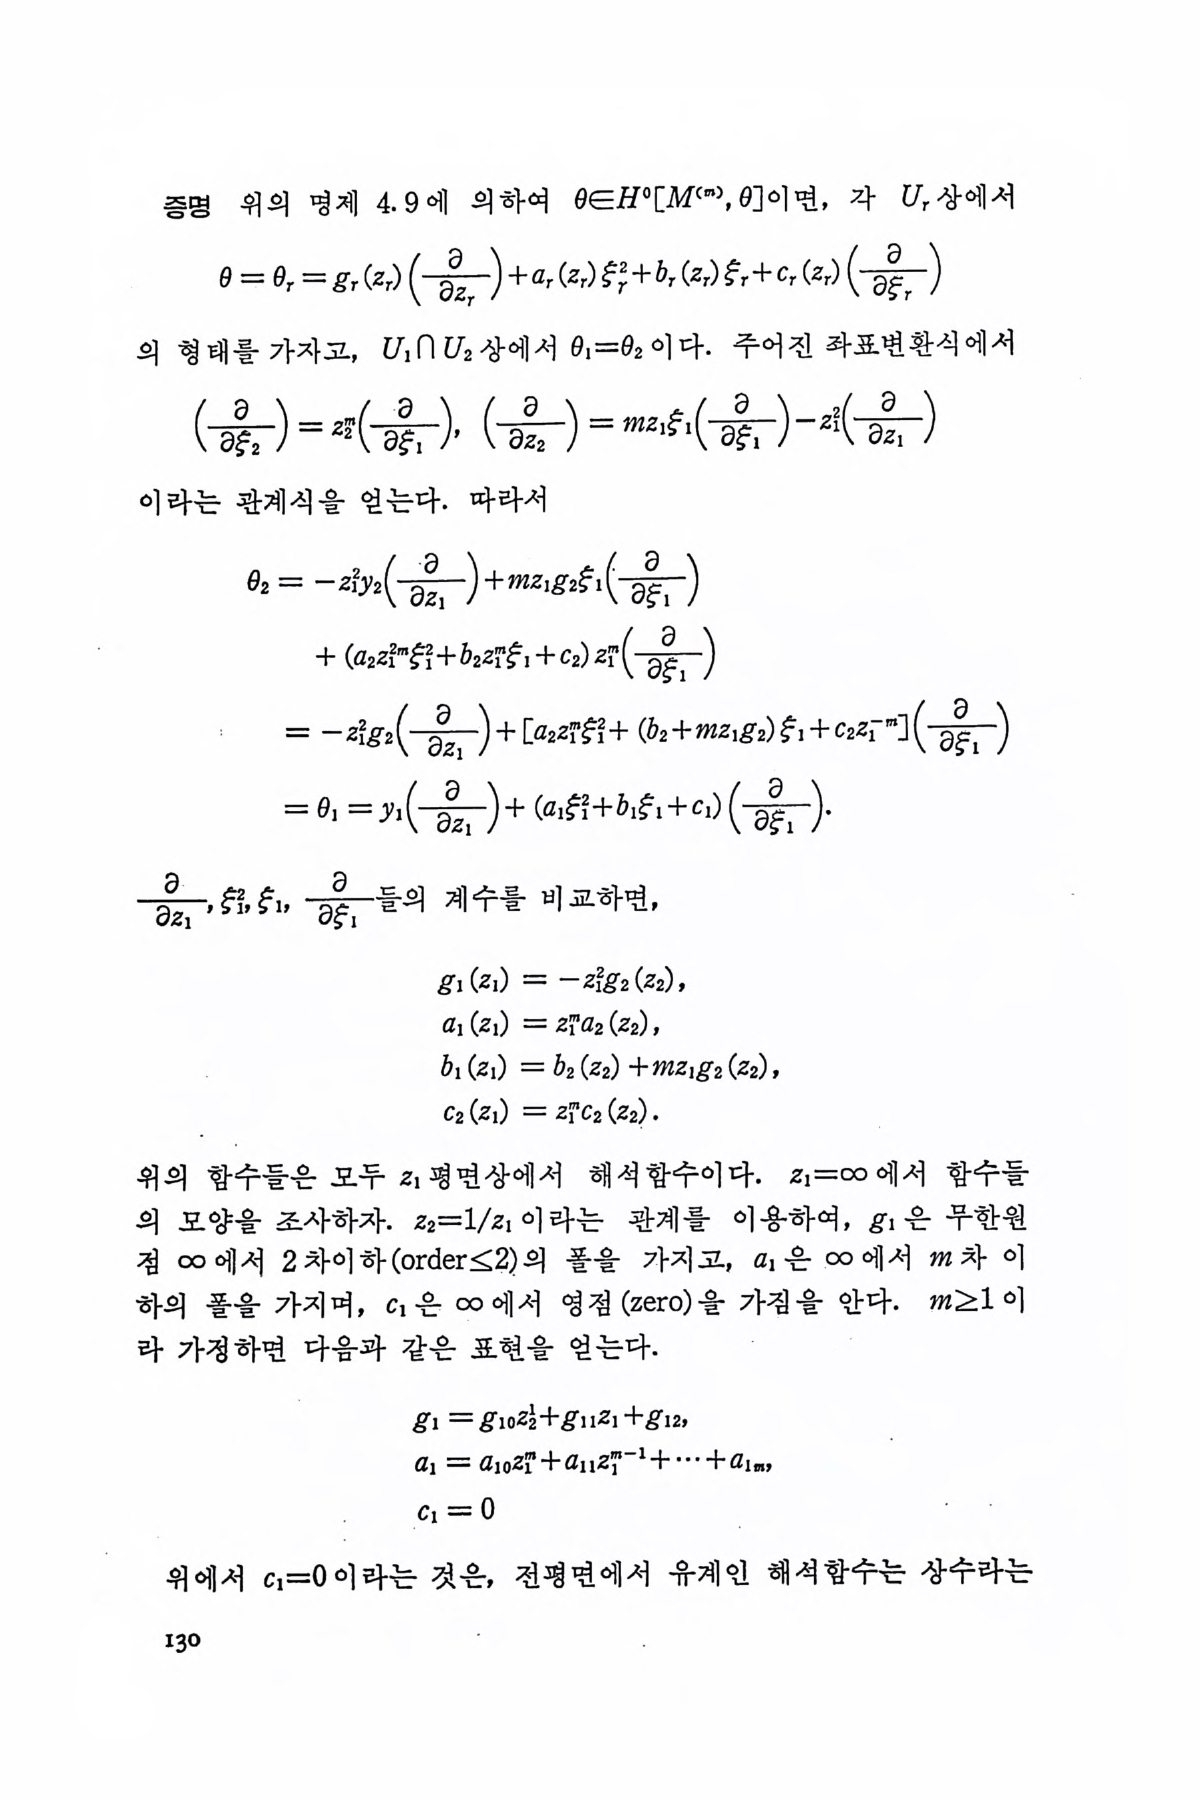 증명 위의 명제 4.9에 의하여 θ∈H⁰[M⁽ᵐ⁾, θ]이면, 각 Uᵣ상에서
θ = θᵣ = gᵣ(zᵣ)(∂/∂zᵣ) + aᵣ(zᵣ)ξᵣ² + bᵣ(zᵣ)ξᵣ + cᵣ(zᵣ)(∂/∂ξᵣ)
의 형태를 가자고, U₁∩U₂상에서 θ₁=θ₂이다. 주어진 좌표변환식에서
(∂/∂ξ₂) = z₂ᵐ(∂/∂ξ₁), (∂/∂z₂) = mz₁ξ₁(∂/∂ξ₁) − z₁²(∂/∂z₁)
이라는 관계식을 얻는다. 따라서
θ₂ = −z₁²y₂(∂/∂z₁) + mz₁g₂ξ₁(∂/∂ξ₁)
+ (a₂z₁²ᵐξ₁² + b₂z₁ᵐξ₁ + c₂) z₁ᵐ(∂/∂ξ₁)
= −z₁²g₂(∂/∂z₁) + [a₂z₁ᵐξ₁² + (b₂+mz₁g₂)ξ₁ + c₂z₁⁻ᵐ](∂/∂ξ₁)
= θ₁ = y₁(∂/∂z₁) + (a₁ξ₁² + b₁ξ₁ + c₁)(∂/∂ξ₁).
∂/∂z₁, ξ₁², ξ₁, ∂/∂ξ₁들의 계수를 비교하면,
g₁(z₁) = −z₁²g₂(z₂),
a₁(z₁) = z₁ᵐa₂(z₂),
b₁(z₁) = b₂(z₂) + mz₁g₂(z₂),
c₂(z₁) = z₁ᵐc₂(z₂).
위의 함수들은 모두 z₁평면상에서 해석함수이다. z₁=∞에서 함수들
의 모양을 조사하자. z₂=1/z₁이라는 관계를 이용하여, g₁은 무한원
점 ∞에서 2차이하(order≤2)의 폴을 가지고, a₁은 ∞에서 m차 이
하의 폴을 가지며, c₁은 ∞에서 영점(zero)을 가짐을 안다. m≥1이
라 가정하면 다음과 같은 표현을 얻는다.
g₁ = g₁₀z₂¹ + g₁₁z₁ + g₁₂,
a₁ = a₁₀z₁ᵐ + a₁₁z₁ᵐ⁻¹ + ⋯ + a₁ₘ,
c₁ = 0
위에서 c₁=0이라는 것은, 전평면에서 유계인 해석함수는 상수라는
130